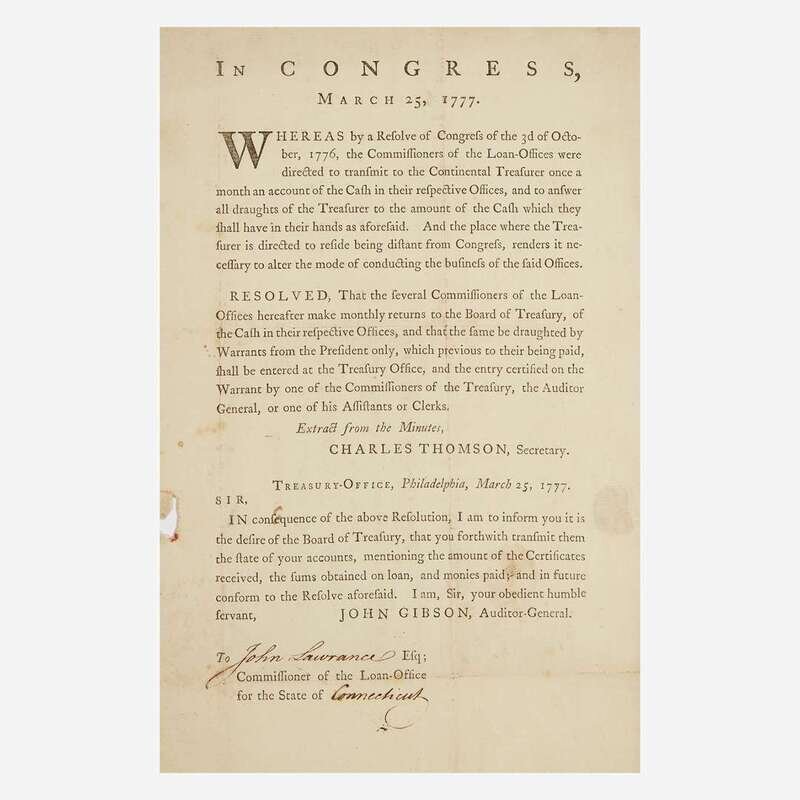 IN CONGRESS,
MARCH 25, 1777.
WHEREAS by a Reſolve of Congreſs of the 3d of Octo-
ber, 1776, the Commiſſioners of the Loan-Offices were
directed to tranſmit to the Continental Treaſurer once a
month an account of the Caſh in their reſpective Offices, and to anſwer
all draughts of the Treaſurer to the amount of the Caſh which they
ſhall have in their hands as aforeſaid. And the place where the Trea-
ſurer is directed to reſide being diſtant from Congreſs, renders it ne-
ceſſary to alter the mode of conducting the buſineſs of the ſaid Offices.
RESOLVED, That the ſeveral Commiſſioners of the Loan-
Offices hereafter make monthly returns to the Board of Treaſury, of
the Caſh in their reſpective Offices, and that the ſame be draughted by
Warrants from the Preſident only, which previous to their being paid,
ſhall be entered at the Treaſury Office, and the entry certified on the
Warrant by one of the Commiſſioners of the Treaſury, the Auditor
General, or one of his Aſſiſtants or Clerks.
Extract from the Minutes,
CHARLES THOMSON, Secretary.
TREASURY-OFFICE, Philadelphia, March 25, 1777.
SIR,
IN conſequence of the above Reſolution, I am to inform you it is
the deſire of the Board of Treaſury, that you forthwith tranſmit them
the ſtate of your accounts, mentioning the amount of the Certificates
received, the ſums obtained on loan, and monies paid; and in future
conform to the Reſolve aforeſaid. I am, Sir, your obedient humble
ſervant, JOHN GIBSON, Auditor-General.
To John Lawrance Eſq;
Commiſſioner of the Loan-Office
for the State of Connecticut